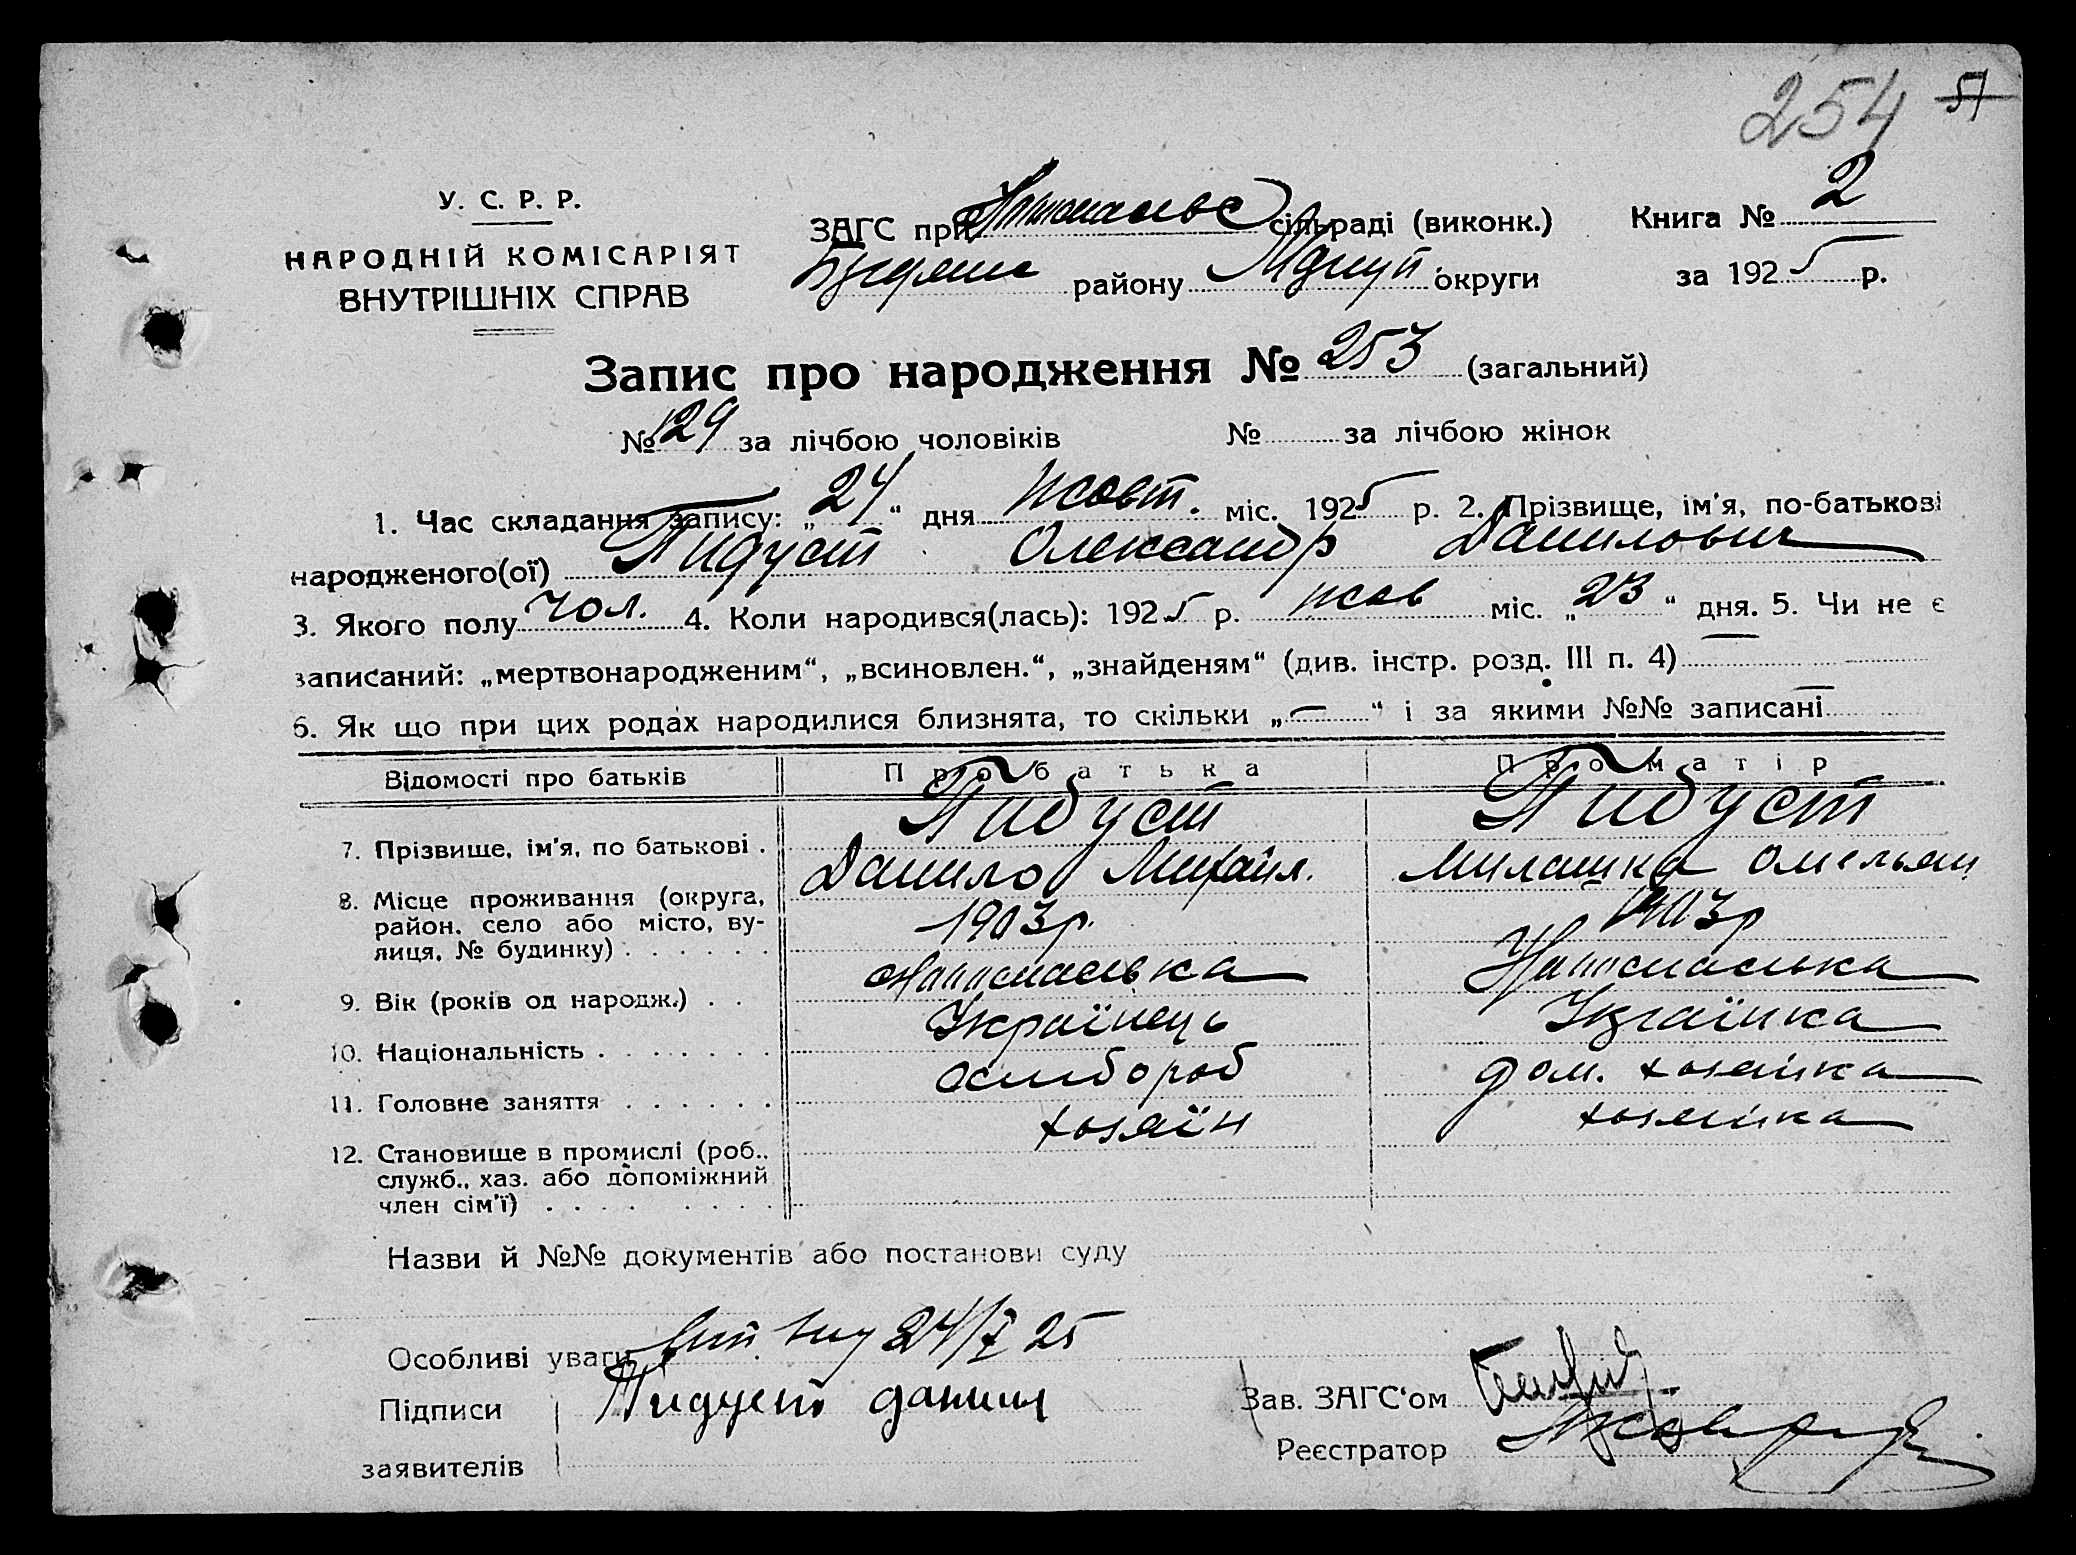 254 51
У. С. Р. Р.
НАРОДНІЙ КОМІСАРІЯТ
ВНУТРІШНІХ СПРАВ
ЗАГС при сільраді (виконк.)
району округи
Книга № 2
за 1925 р.
Запис про народження № 253 (загальний)
№ 129 за лічбою чоловіків № за лічбою жінок
1. Час складання запису: „24“ дня жовт. міс. 1925 р. 2. Прізвище, ім'я, по-батькові
народженого(ої) Пидуст Олександр Данилович
3. Якого полу чол. 4. Коли народився(лась): 1925 р. жов міс. „23“ дня. 5. Чи не є
записаний: „мертвонародженим“, „всиновлен.“, „знайденям“ (див. інстр. розд. III п. 4) —
6. Як що при цих родах народилися близнята, то скільки „—“ і за якими №№ записані —
Відомості про батьків Про батька Про матір
7. Прізвище, ім'я, по батькові . Пидуст Пидуст
Данило Михайл. Милашка Омельян
8. Місце проживання (округа,
район, село або місто, ву-
лиця, № будинку) . . . . . . 1903р. 1903р
9. Вік (років од народж.) . .
10. Національність . . . . . . . Українець Українка
11. Головне заняття . . . . . . хлібороб дом. хозяйка
хозяїн хозяйка
12. Становище в промислі (роб..
служб., хаз. або допоміжний
член сім'ї) . . . . . . . .
Назви й №№ документів або постанови суду
Особливі уваги 24/X 25
Підписи Пидуст данило
заявителів
Зав. ЗАГС'ом
Реєстратор